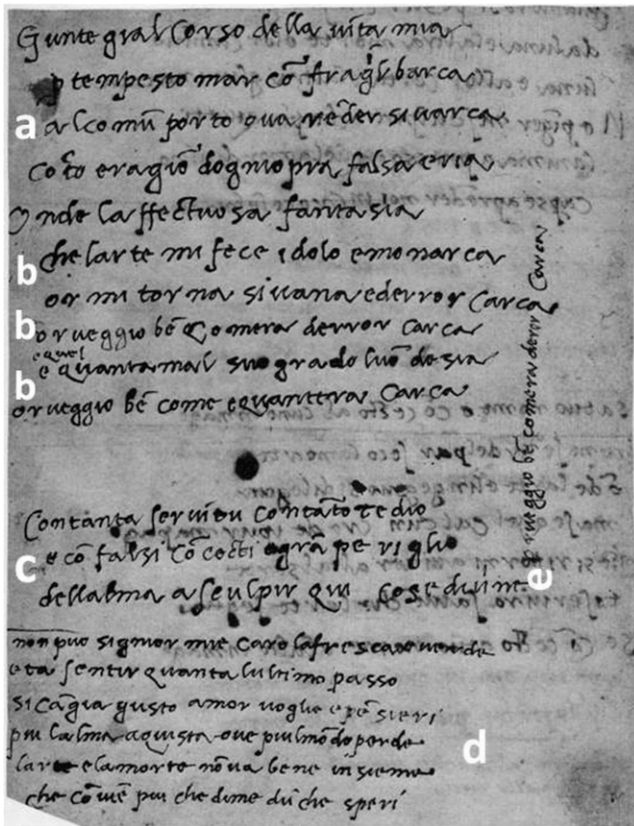 Giunto gial Corso della vita mia
p tempesto mar cō fragil barca
a
al comū porto ova rēder si varca
cōto e ragiō dogni opra falsa e ria
Onde laffectuosa fantasia
b
che larte mi fece idolo e monarca
or mi torna si vana e derror carca
b
or veggio bē comera derror carca
e quel
e quanta mal suo grado luō desia
b
or veggio bē come e quantera carca
Contanta servitu contāto tedio
c
e cō falsi cōcecti e grā periglio
dellalma a sculpir qui cose divine
non puo signior mie caro la fresca e verde
eta sentir quanta lultimo passo
si cāgia gusto amor voglie e pēsieri
piu lalma aquista ove piulmōdo perde
d
larte e la morte nō va bene insieme
che cōviē piu che di me dūche speri
e
or veggio bē comera derror carca